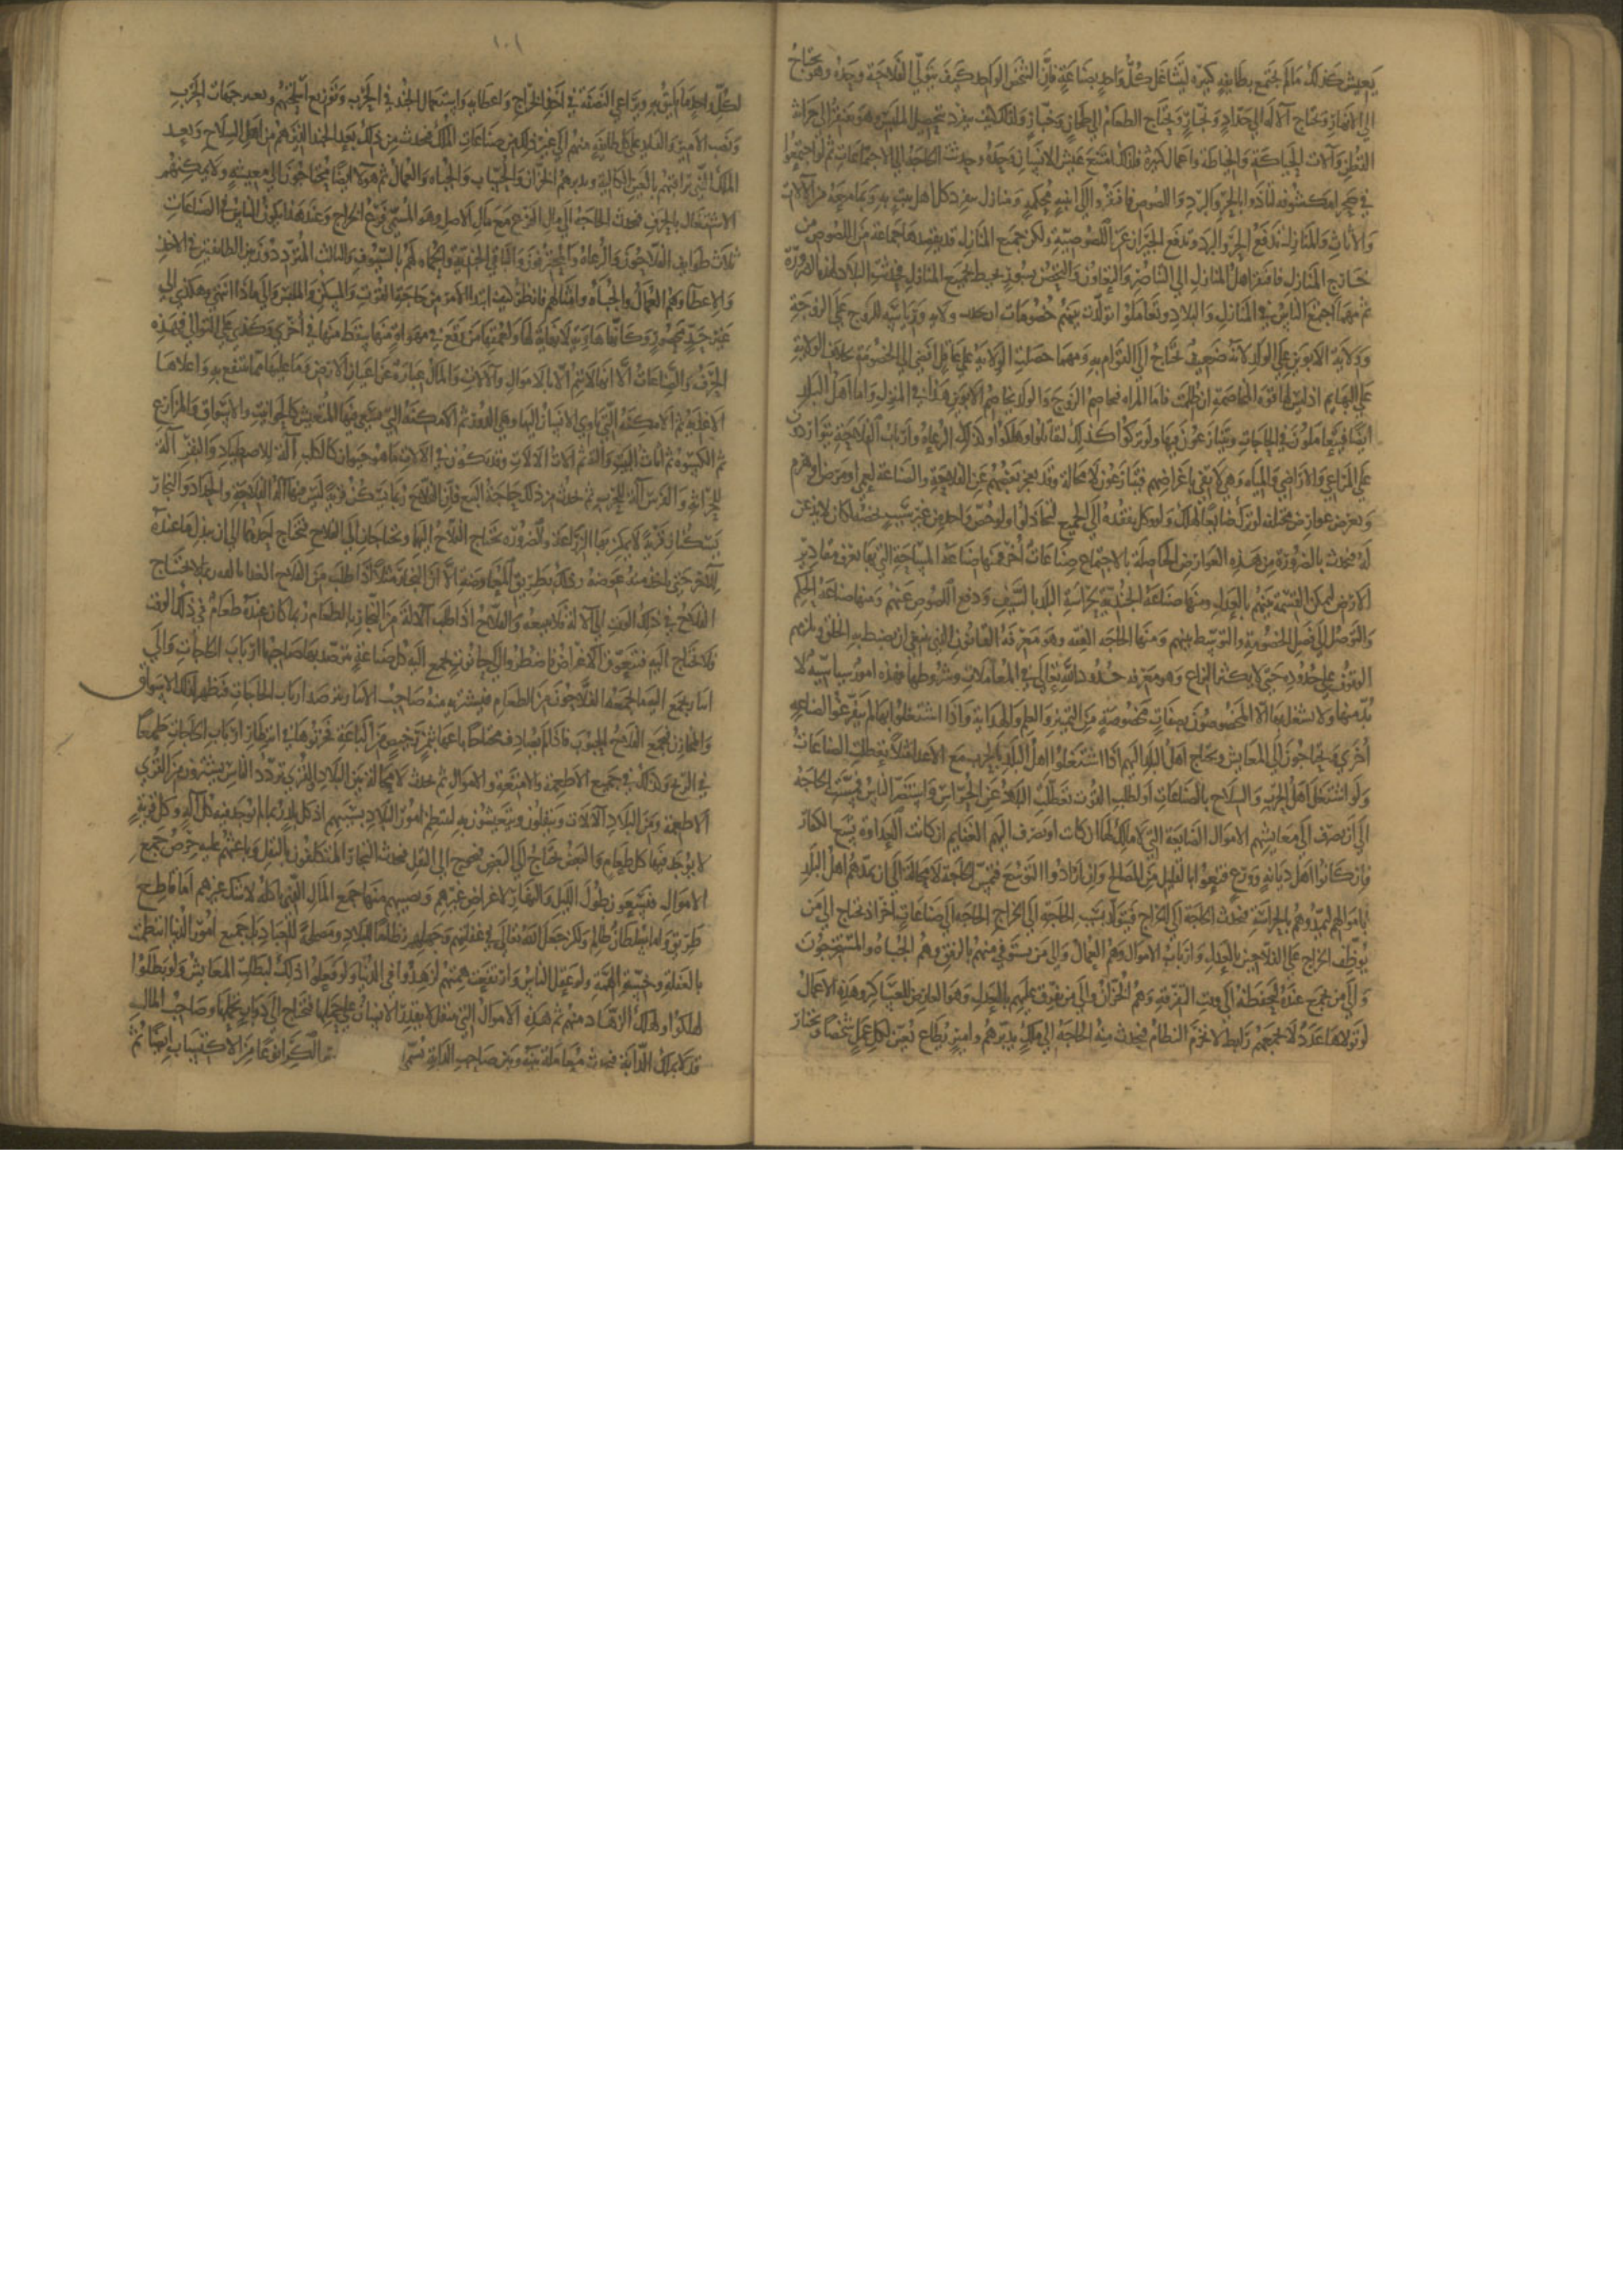 يعيش كذلك ما لم يجتمع بطايفه كثيره ليتشاغل كل واحد بصناعة فان الشخص الواحد كيف يتولي الفلاحة وحده وهو يحتاج
الي الاتها وتحتاج الآلة الي حداد ونجار ويحتاج الطعام الي طحان وخباز وكذلك كيف ينفرد بتحصيل الملبس وهو يفتقر الي حراثة
القطن وآلات الحياكة والخياطة واعمال كثيرة فلذلك امتنع عيش الانسان وحده وحدثت الحاجة الي الاجتماعات ثم لو اجتمعوا
في صحراء مكشوفه لتأذوا بالحر والبرد واللصوص فافتقروا الي ابنيه محكمه ومنازل ينفرد كل اهل بيت به وبما معه من الآلات
والأثاث والمنازل تدفع الحر والبرد وتدفع الجيران من اللصوصية ولكن جميع المنازل قد يقصدها جماعة من اللصوص من
خارج المنازل فافتقر اهل المنازل الي التناصر والتعاون والتحصن بسور يحيط بجميع المنازل فحدثت البلاد لهذه الضرورة
ثم مهما اجتمع الناس في المنازل والبلاد وتعاملوا تولدت بينهم خصومات اذ تحدث ولاية ورياسة للزوج على الزوجة
وولاية الابوين علي الولد لانه ضعيف يحتاج الي القوام به ومهما حصلت الولاية علي عاقل افضي الي الخصومة بخلاف الولاية
علي البهايم اذ ليس لها قوة المخاصمة ان ظلمت فاما المراه فتخاصم الزوج والولد يخاصم الابوين هذا في المنزل واما اهل البلد
ايضا فيتعاملون في الحاجات ويتنازعون فيها ولو تركوا كذلك لتقاتلوا وهلكوا وكذلك الرعاة وارباب الفلاحة يتواردون
علي المراعي والاراضي والمياه وهي لا تفي باغراضهم فيتنازعون لا محالة وقد يعجز بعضهم عن الفلاحة والصناعة لعمي او مرض او هرم
وتعرض عوارض مختلفه لو ترك ضايعا لهلك ولو وكل تفقده الي الجميع لتخاذلوا ولو خص واحد من غير سبب يخصه لكان لا يذعن
له فحدث بالضرورة من هذه العوارض الحاصلة بالاجتماع صناعات أخر فمنها صناعة المساحة التي بها تعرف مقادير
الارض لتمكن القسمة بينهم بالعدل ومنها صناعة الجندية بحراسة البلد بالسيف ودفع اللصوص عنهم ومنها صناعة الحكم
والتوصل الي فصل الخصومة والتوسط بينهم ومنها الحاجة الي الفقه وهو معرفة القانون الذي ينبغي ان يضبط به الخلق ويلزمهم
الوقوف علي حدوده حتي لا يكثر النزاع وهو معرفة حدود الله تعالى في المعاملات وشروطها فهذه امور سياسية لا
بد منها ولا يشتغل بها الا المخصوصون بصفات مخصوصة من التمييز والعلم والهداية واذا اشتغلوا بها لم يتفرغوا لصناعه
أخري ويحتاجون الي المعاش ويحتاج اهل البلد اليهم اذا اشتغلوا اهل البلد بالحرب مع الاعداء مثلا تعطلت الصناعات
ولو اشتغل اهل الحرب والسلاح بالصناعات او لطلب القوت تعطلت البلاد عن الحراس واستضر الناس فمست الحاجة
الي ان يصرف الي معايشهم الاموال الضايعة التي لا مالك لها ان كانت او تصرف اليهم الغنايم ان كانت العداوة مع الكفار
فان كانوا اهل ديانة وورع قنعوا بالقليل من المصالح وان ارادوا التوسع فتمس الحاجة لا محالة الي ان يمدهم اهل البلد
باموالهم ليمدوهم بالحراسة فتحدث الحاجة الي الخراج فيتولد بسبب الحاجة الي الخراج الحاجة الي صناعات أخر اذ يحتاج الي من
يوظف الخراج علي الفلاحين بالعدل وارباب الاموال وهم العمال والي من يستوفي منهم بالرفق وهم الجباه والمستخرجون
والي من يجمع عنده ليحفظه الي وقت التفرقة وهم الخزان والي من يفرق عليهم بالعدل وهو الفارض للعساكر وهذه الاعمال
لو تولاها عدد لا تجمعهم رابطة لانخرم النظام فتحدث منه الحاجة الي ملك يدبرهم وامير يطاع يعين لكل عمل شخصا ويختار
١٠١
لكل واحد ما يليق به ويراعي النصفة في اخذ الخراج واعطايه واستعمال الجند في الحرب وتوزيع اسلحتهم وتعيين جهات الحرب
ونصب الامير والقايد علي كل طايفة منهم الي غير ذلك من صناعات الملك فتحدث من ذلك بعد الجند الذين هم من اهل السلاح وبعد
الملك الذي يراقبهم بالعين الكالية ويدبرهم الخزان والحساب والجباه والعمال ثم هولاء ايضا يحتاجون الي معيشه ولا يمكنهم
الاشتغال بالحرف فتحدث الحاجة الي مال الفرع مع مال الاصل وهو المسمي فرع الخراج وعند هذا يكون الناس في الصناعات
ثلاث طوايف الفلاحون والرعاة والمحترفون والثاني الجندية والحماة لهم بالسيوف والثالث المتردد دون بين الطايفتين في الاخذ
والاعطا وهم العمال والجباه وامثالهم فانظر كيف ابتدا الامر من حاجة القوت والمسكن والملبس والي ماذا انتهي وهكذي الي
غير حد محصور وكأنها هاوية لا نهاية لها ولعمقها من وقع في مهواة منها سقط منها في أخري وهكذي علي التوالي فهذه
الحرف والصناعات الا انها لا تتم الا بالاموال وآلالات والمال عبارة عن اعيان الارض وما عليها مما ينتفع به واعلاها
الاغذية ثم الامكنة التي ياوي الانسان اليها وهي الدور ثم الامكنة التي يسعى فيها للتعيش كالحوانيت والاسواق والمزارع
ثم الكسوة ثم اثاث البيت وآلاته ثم الات الآلات وقد يكون في الآلات ما هو حيوان كالكلب آلة للاصطياد والبقر آلة
للحراثة والفرس آلة للحرب ثم يحدث من ذلك حاجة البيع فان الفلاح ربما يسكن قرية ليس فيها آلة الفلاحة والحداد والنجار
يسكنان قرية لا يمكن بها الزراعة وبالضرورة يحتاج الفلاح اليهما ويحتاجان الي الفلاح فيحتاج احدهما الي ان يبذل ما عنده
للاخر حتي ياخذ منه عوضه وذلك بطريق المعاوضة الا ان النجار مثلا اذا طلب من الفلاح الغذا بالته ربما لا يحتاج
الفلاح في ذلك الوقت الي آلاته فلا يبيعه والفلاح اذا طلب آلالة من النجار بالطعام ربما كان عنده طعام في ذلك الوقت
فلا يحتاج اليه فتتعوق الاغراض فاضطروا الي حانوت يجمع آلة كل صناعة يترصد بها صاحبها ارباب الحاجات والي
يجمع اليها ما يجمعه الفلاحون من الطعام فيشتريه منه صاحب ليترصد ارباب الحاجات فظهر لذلك الاسواق
والمخازن فيجمع الفلاح الحبوب فاذا لم يصادف محتاجا باعها بثمن رخيص من الباعة فخزنوها في انتظار ارباب الحاجات طمعا
في الربح وكذلك في جميع الاطعمة والامتعة والاموال ثم يحدث لا محالة بين البلاد والقري تردد الناس يشترون من القري
الاطعمة ومن البلاد الآلات وينقلون ويتعيشون به لتنتظم امور البلاد بسببهم اذ كل بلد ربما لم توجد فيه كل آلة وكل قرية
لا يوجد فيها كل طعام والبعض يحتاج الي البعض فيحوج الي النقل فيحدث التجار المتكلفون بالنقل وباعثهم عليه حرص جمع
الاموال فيتعبون طول الليل والنهار لاغراض غيرهم ونصيبهم منها جمع المال الذي ياكله لا شك غيرهم اما قاطع
طريق واما سلطان ظالم ولكن جعل الله تعالي في غفلتهم وجهلهم نظاما للبلاد ومصلحة للعباد بل جميع امور الدنيا انتظمت
بالغفلة وخسة الهمة ولو عقل الناس وارتفعت هممهم لزهدوا في الدنيا ولو فعلوا ذلك لبطلت المعايش ولو بطلوا
لهلكوا ولهلك الزهاد منهم ثم هذه الاموال التي تنقل لا يقدر الانسان علي حملها فتحتاج الي دواب تحملها وصاحب المال
قد لا يملك الدابة فتحدث معاملة بينه وبين صاحب الدابة تسمي الكرا نوعا من الاكتساب ايضا ثم